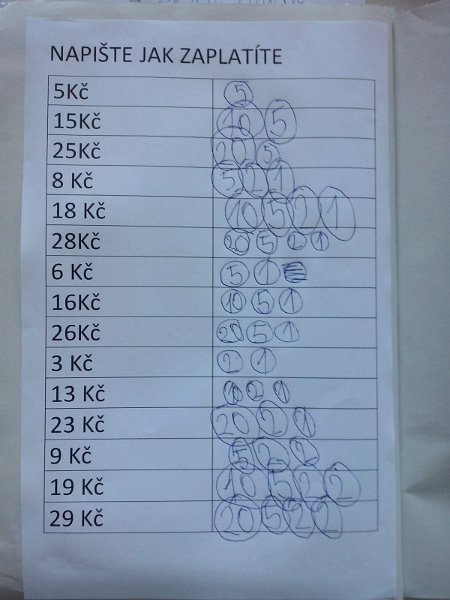 NAPIŠTE JAK ZAPLATÍTE
5Kč 5
15Kč 10 5
25Kč 20 5
8 Kč 5 2 1
18 Kč 10 5 2 1
28Kč 20 5 2 1
6 Kč 5 1
16Kč 10 5 1
26Kč 20 5 1
3 Kč 2 1
13 Kč 10 2 1
23 Kč 20 2 1
9 Kč 5 2 2
19 Kč 10 5 2 2
29 Kč 20 5 2 2